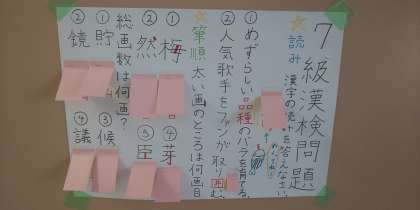 7級漢検問題
☆読み 漢字の読みを答えなさい。
①めずらしい品種のバラを育てる。
②人気歌手をファンが取り囲む。
☆筆順 太い画のところは何画目
①梅
②然
④芽
⑤臣
総画数は何画?
①貯
②鏡
③候
④議